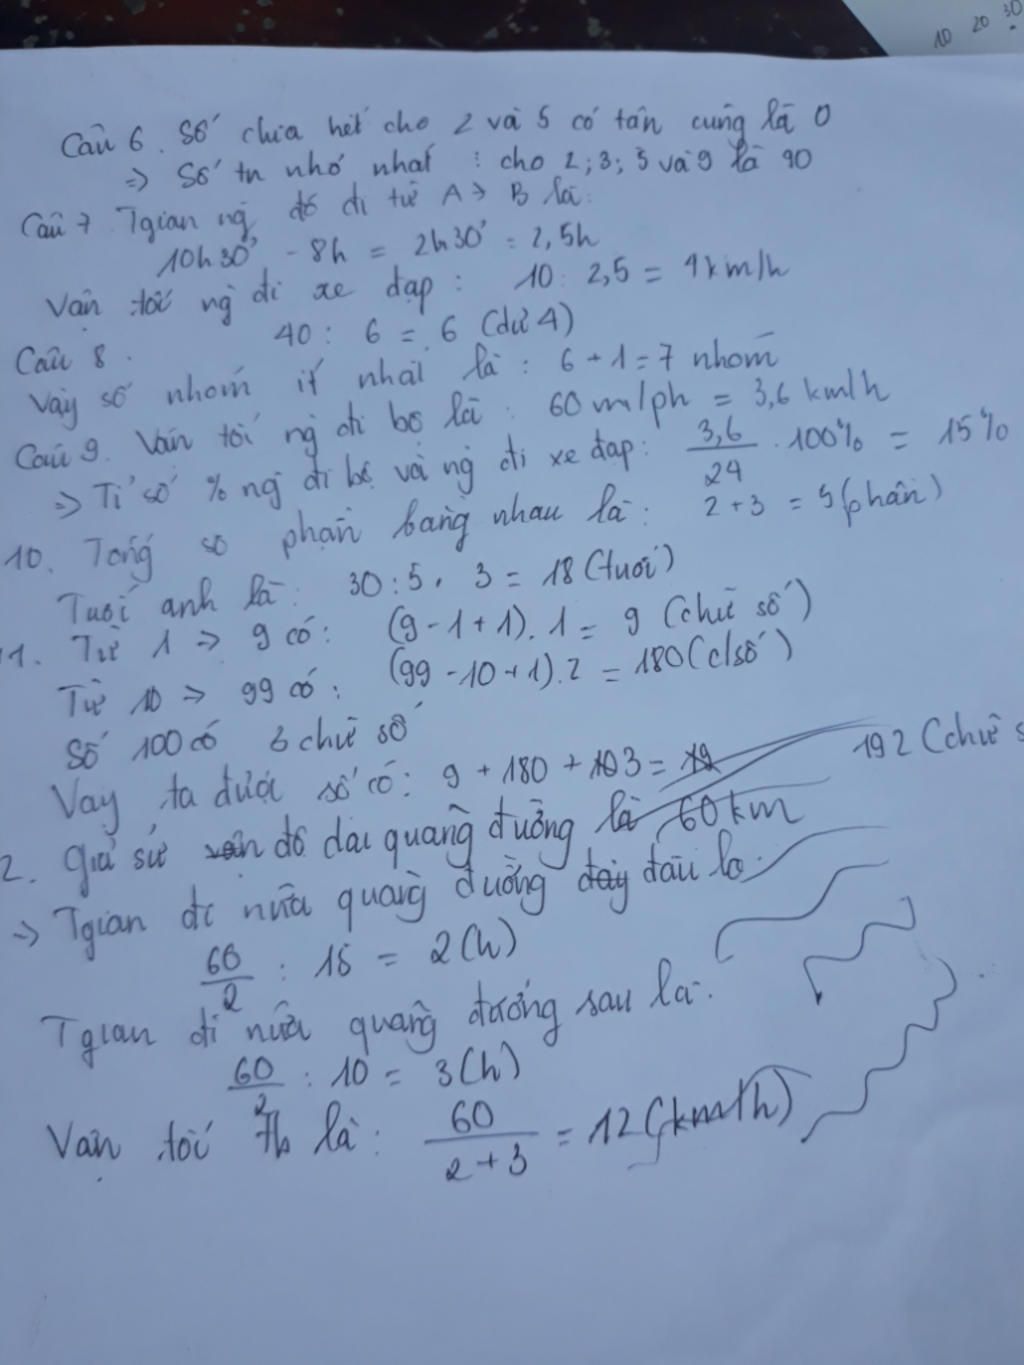 10 20 30
Câu 6. Số chia hết cho 2 và 5 có tận cùng là 0
=> Số tn nhỏ nhất : cho 2; 3; 5 và 9 là 90
Câu 7 Tgian ng đó đi từ A -> B là:
10h30' - 8h = 2h30' = 2,5h
Vận tốc ng đi xe đạp : 10 : 2,5 = 4km/h
Câu 8. 40 : 6 = 6 (dư 4)
Vậy số nhóm ít nhất là : 6 + 1 = 7 nhóm
Câu 9. Vận tốc ng đi bộ là : 60 m/ph = 3,6 km/h
=> Tỉ số % ng đi bộ và ng đi xe đạp: 3,6/24 . 100% = 15%
10. Tổng số phần bằng nhau là: 2 + 3 = 5 (phần)
Tuổi anh là: 30 : 5 . 3 = 18 (tuổi)
11. Từ 1 => 9 có: (9 - 1 + 1). 1 = 9 (chữ số)
Từ 10 => 99 có: (99 - 10 + 1). 2 = 180 (c/số)
Số 100 có 3 chữ số
Vậy ta được số có: 9 + 180 + 3 = 192 (chữ s
2. Giả sử độ dài quãng đường là 60km
=> Tgian đi nửa quãng đường đầu là:
60/2 : 15 = 2 (h)
Tgian đi nửa quãng đường sau là:
60/2 : 10 = 3 (h)
Vận tốc tb là: 60/2+3 = 12 (km/h)